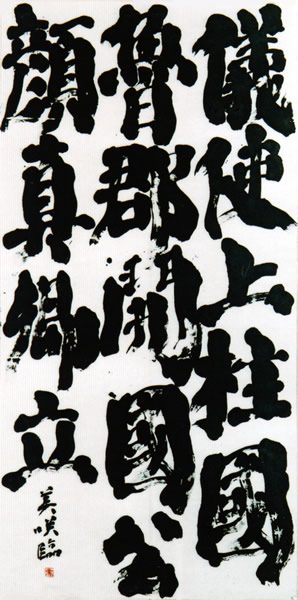 儀使上柱國
魯郡開國公
顔真卿立
美咲臨